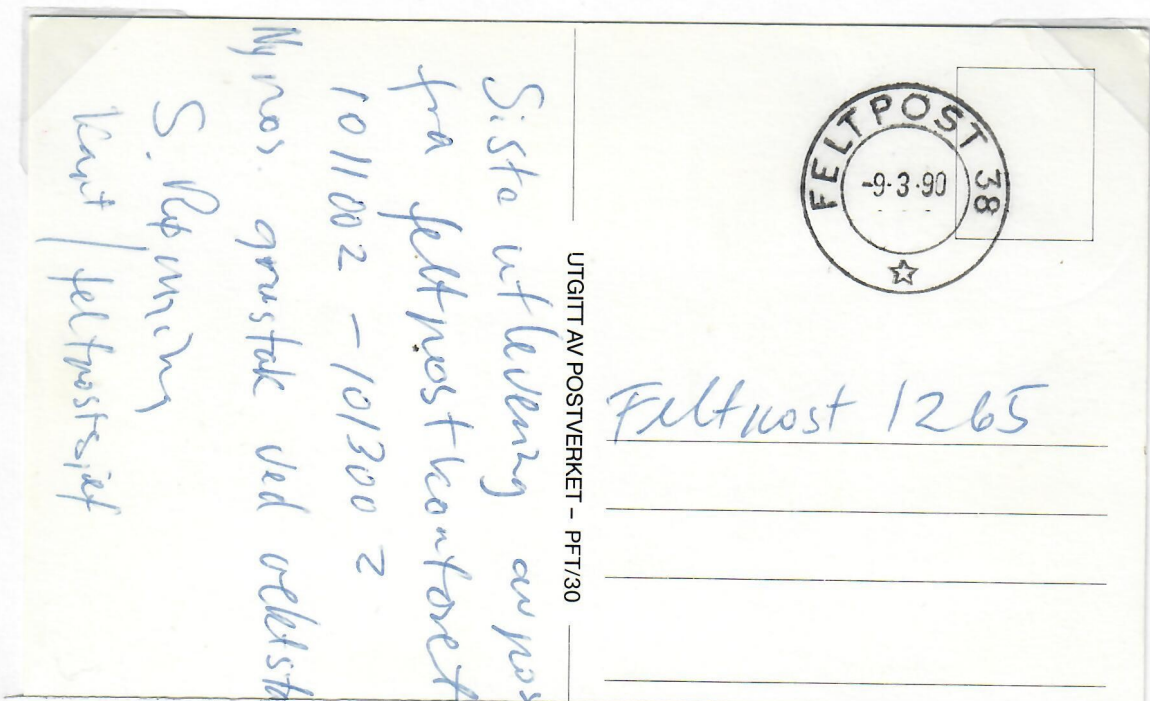 Siste utlevering av pos
fra feltpostkontoret
101100Z - 101300Z
Ny pos. grustak ved vektsta
S.
Kapt / feltpostsjef
UTGITT AV POSTVERKET – PFT/30
FELTPOST 38
-9-3-90
Feltpost 1265